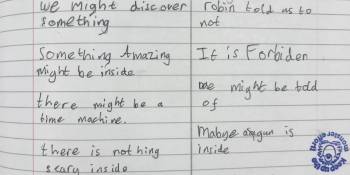 we might discover
something
Something Amazing
might be inside
there might be a
time machine.
there is nothing
scary inside
robin told us to
not
It is Forbiden
one might be told
of
Mabye dragon is
inside
keep up the